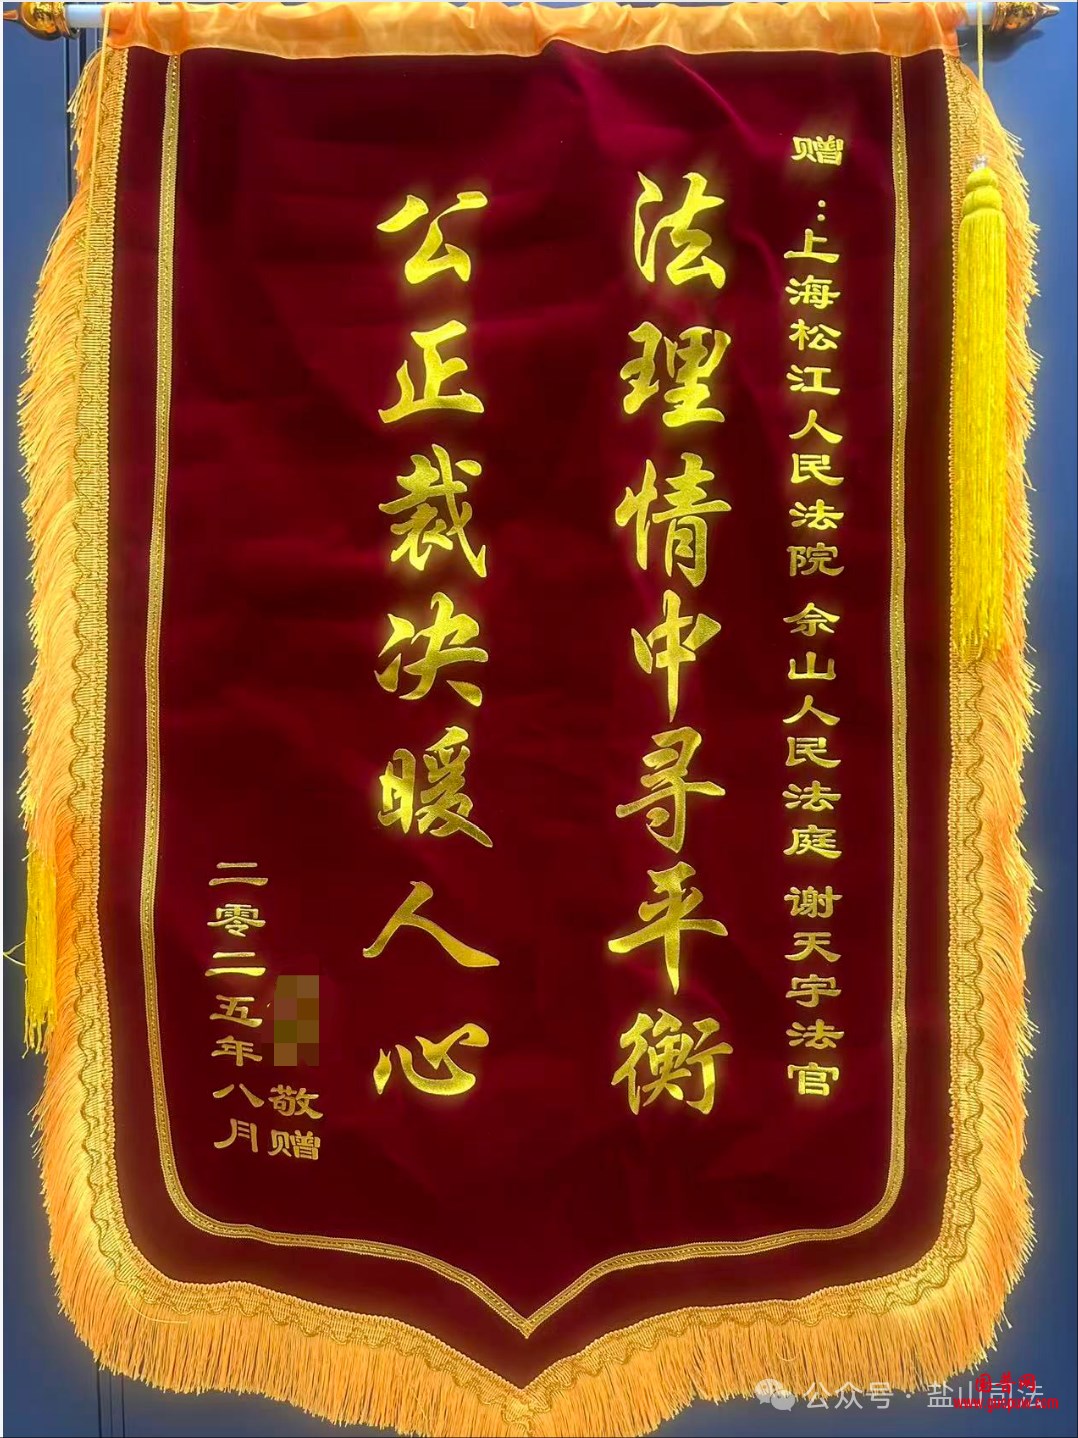 赠：上海松江人民法院 佘山人民法庭 谢天宇法官
法理情中寻平衡
公正裁决暖人心
敬赠
二零二五年八月
公众号 · 盐山司法